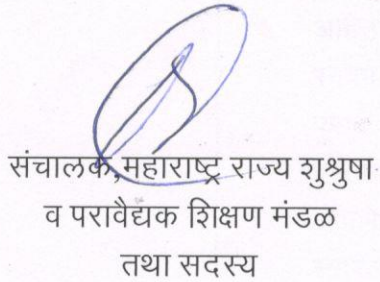 संचालक, महाराष्ट्र राज्य शुश्रुषा
व परावैद्यक शिक्षण मंडळ
तथा सदस्य